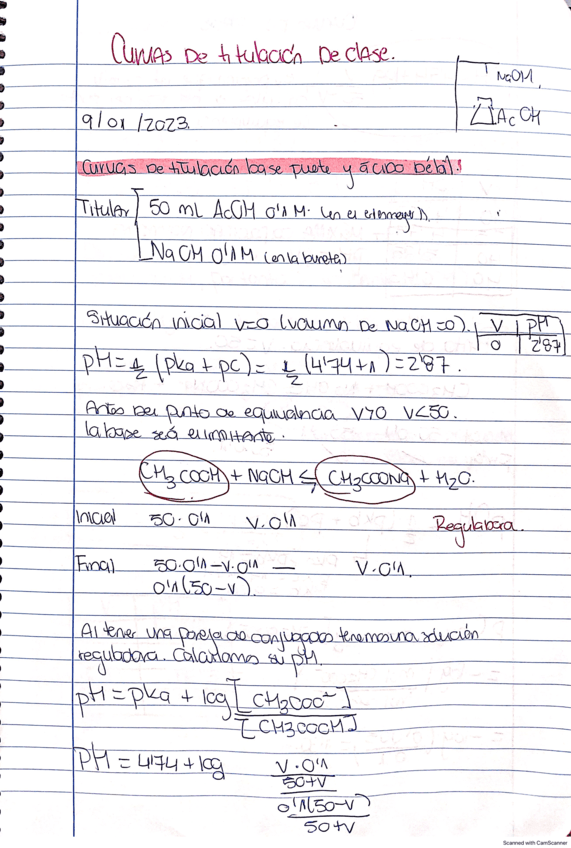 Curvas De titulación De clase.
NaOH
AcOH
9/01/2023.
Curvas De titulación base fuerte y ácido Débil.
Titular 50 mL AcOH 0'1 M. (en el erlenmeyer).
NaOH 0'1M (en la bureta)
Situación inicial V=0 (volumen De NaOH=0).
V | pH
0 | 2'87
pH = 1/2 (pka + pc) = 1/2 (4'74+1) = 2'87.
Antes Del punto de equivalencia V>0 V<50.
la base será el limitante.
CH3COOH + NaOH ⇆ CH3COONa + H2O.
Inicial 50·0'1 V·0'1 Reguladora.
Final 50·0'1-V·0'1 — V·0'1.
0'1(50-V).
Al tener una pareja de conjugados tenemos una solución
reguladora. Calculamos su pH.
pH = pka + log [CH3COO-] / [CH3COOH]
pH = 4'74 + log
V·0'1
50+V
0'1(50-V)
50+V
Scanned with CamScanner